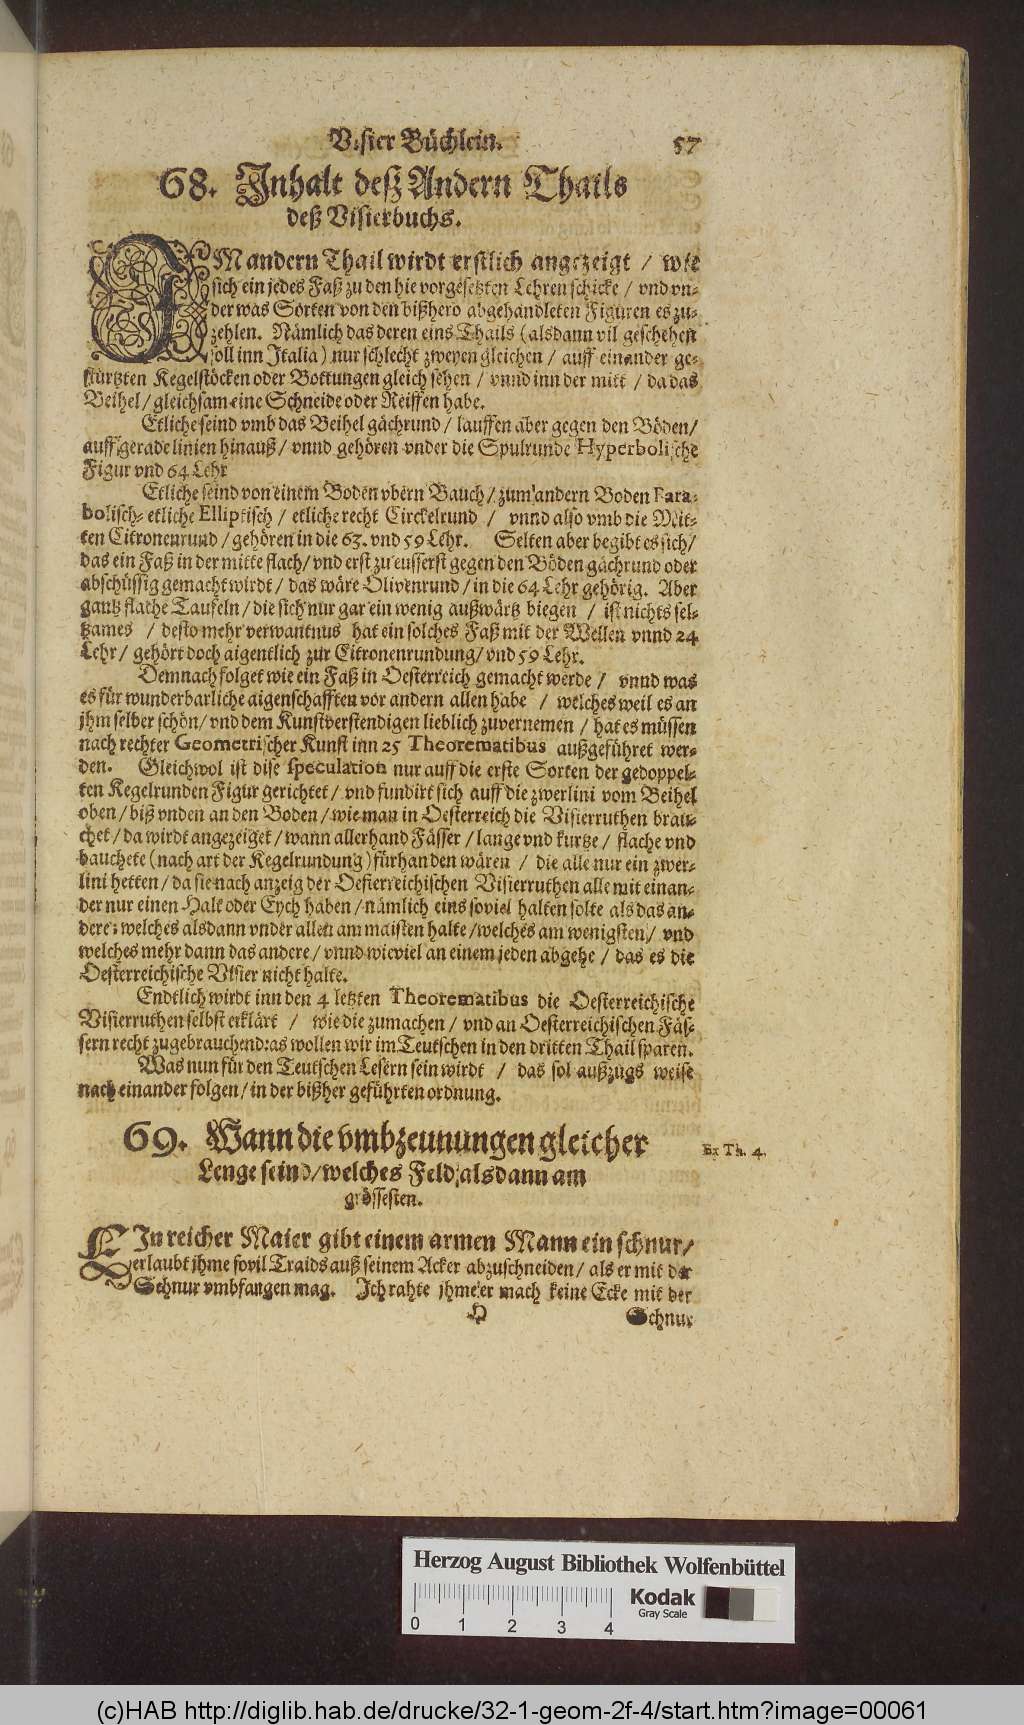 Visier Büchlein. 57
68. Inhalt deß Andern Thails
deß Visierbuchs.
IM andern Thail wirdt erstlich angezeigt / wie
sich ein jedes Faß zu den hie vorgesetzten Lehren schicke / vnd vn-
der was Sorten von den bißhero abgehandleten Figuren es zu-
zehlen. Nämlich das deren eins Thails (alsdann vil geschehen
soll inn Italia) nur schlecht zweyen gleichen / auff einander ge-
stürtzten Kegelstöcken oder Bottungen gleich sehen / vnnd inn der mitt / da das
Beihel / gleichsam eine Schneide oder Reiffen habe.
Etliche seind vmb das Beihel gächrund / lauffen aber gegen den Böden /
auff gerade linien hinauß / vnnd gehören vnder die Spulrunde Hyperbolische
Figur vnd 64 Lehr
Etliche seind von einem Boden vbern Bauch / zum andern Boden Para-
bolisch- etliche Elliptisch / etliche recht Circkelrund / vnnd also vmb die Mit-
ten Citronenrund / gehören in die 63. vnd 59 Lehr. Selten aber begibt es sich /
das ein Faß in der mitte flach / vnd erst zu eusserst gegen den Böden gächrund oder
abschüssig gemacht wirdt / das wäre Olivenrund / in die 64 Lehr gehörig. Aber
gantz flache Taufeln / die sich nur gar ein wenig außwärtz biegen / ist nichts sel-
tzames / desto mehr verwantnus hat ein solches Faß mit der Wellen vnnd 24
Lehr / gehört doch aigentlich zur Citronenrundung / vnd 59 Lehr.
Demnach folget wie ein Faß in Oesterreich gemacht werde / vnnd was
es für wunderbarliche aigenschafften vor andern allen habe / welches weil es an
jhm selber schön / vnd dem Kunstverstendigen lieblich zuvernemen / hat es müssen
nach rechter Geometrischer Kunst inn 25 Theorematibus außgeführet wer-
den. Gleichwol ist dise speculation nur auff die erste Sorten der gedoppel-
ten Kegelrunden Figur gerichtet / vnd fundirt sich auff die zwerlini vom Beihel
oben / biß vnden an den Boden / wie man in Oesterreich die Visierruthen brau-
chet / da wirdt angezeiget / wann allerhand Fässer / lange vnd kurtze / flache vnd
bauchete (nach art der Kegelrundung) fürhanden wären / die alle nur ein zwer-
lini hetten / da sie nach anzeig der Oesterreichischen Visierruthen alle mit einan-
der nur einen Halt oder Eych haben / nämlich eins soviel halten solte als das an-
dere: welches alsdann vnder allen am maisten halte / welches am wenigsten / vnd
welches mehr dann das andere / vnnd wieviel an einem jeden abgehe / das es die
Oesterreichische Visier nicht halte.
Endtlich wirdt inn den 4 letzten Theorematibus die Oesterreichische
Visierruthen selbst erklärt / wie die zumachen / vnd an Oesterreichischen Fäs-
sern recht zugebrauchen: das wollen wir im Teutschen in den dritten Thail sparen.
Was nun für den Teutschen Lesern sein wirdt / das sol außzugs weise
nach einander folgen / in der bißher geführten ordnung.
69. Wann die vmbzeunungen gleicher
Lenge seind / welches Feld alsdann am
grössesten.
Ex Th. 4.
EIn reicher Maier gibt einem armen Mann ein schnur /
erlaubt jhme sovil Traids auß seinem Acker abzuschneiden / als er mit der
Schnur vmbfangen mag. Ich rahte jhme er mach keine Ecke mit der
H Schnur
Herzog August Bibliothek Wolfenbüttel
Kodak
Gray Scale
0 1 2 3 4
(c)HAB http://diglib.hab.de/drucke/32-1-geom-2f-4/start.htm?image=00061